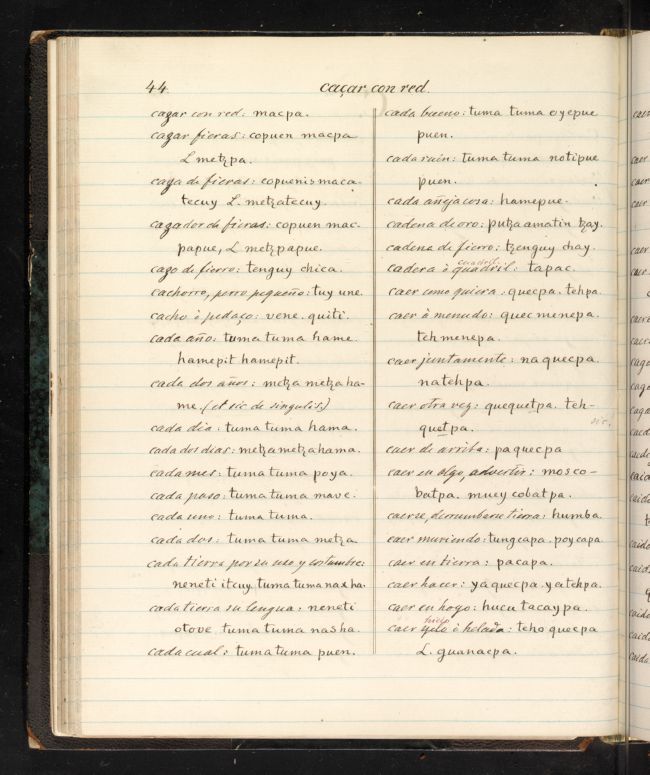 44.
caçar con red.
cazar con red: macpa.
cazar fieras: copuen macpa
L metzpa.
caza de fieras: copuenis maca-
tecuy L. metzatecuy.
cazador de fieras: copuen mac-
papue, L metzpapue.
cazo de fierro: tenguy chica.
cachorro, perro pequeño: tuy une.
cacho ò pedaço: vene. quiti.
cada año: tuma tuma hame.
hamepit hamepit.
cada dos años: metza metza ha-
me. (et sic de singulis.)
cada dia: tuma tuma hama.
cada dos dias: metza metza hama.
cada mes: tuma tuma poya.
cada paso: tuma tuma mave.
cada uno: tuma tuma.
cada dos: tuma tuma metza.
cada tierra por su uso y costumbre:
neneti itcuy. tuma tuma nasha.
cada tierra su lengua: neneti
otove. tuma tuma nasha.
cada cual: tuma tuma puen.
cada bueno: tuma tuma oyepue
puen.
cada ruin: tuma tuma notipue
puen.
cada añeja cosa: hamepue.
cadena de oro: putza amatin tzay.
cadena de fierro: tzenguy chay.
cuadril
cadera ò quadril: tapac.
caer como quiera: quecpa. tehpa.
caer à menudo: quecmenepa.
tehmenepa.
caer juntamente: naquecpa.
natehpa.
caer otra vez: quequetpa. teh-
quetpa.
sic.
caer de arriba: paquecpa
caer en algo, advertir: mosco-
batpa. mucycobatpa.
caerse, derrumbarse tierra: humba.
caer muriendo: tungcapa. poycapa.
caer en tierra: pacapa.
caer hacer: yaquecpa. yatehpa.
caer en hoyo: hucu tacaypa.
hielo
caer yelo ò helada: teho quecpa
L. guanacpa.